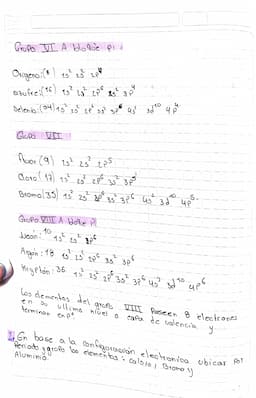 Grupo VI A bloque p:
Oxigeno:(8) 1s² 2s² 2p⁴
azufre:(16) 1s² 2s² 2p⁶ 3s² 3p⁴
Selenio:(34) 1s² 2s² 2p⁶ 3s² 3p⁶ 4s² 3d¹⁰ 4p⁴
Grupo VII
fluor (9) 1s² 2s² 2p⁵
Cloro (17) 1s² 2s² 2p⁶ 3s² 3p⁵
Bromo(35) 1s² 2s² 2p⁶ 3s² 3p⁶ 4s² 3d¹⁰ 4p⁵
Grupo VIII A bloque P
Neón: 10 1s² 2s² 2p⁶
Argon: 18 1s² 2s² 2p⁶ 3s² 3p⁶
Kryptón: 36 1s² 2s² 2p⁶ 3s² 3p⁶ 4s² 3d¹⁰ 4p⁶
Los elementos del grupo VIII Poseen 8 electrones
en su ultimo nivel o capa de valencia y
terminan en p⁶
En base a la configuración electronica ubicar por
Periodo y grupo los elementos: calcio, Bromo y
Aluminio.